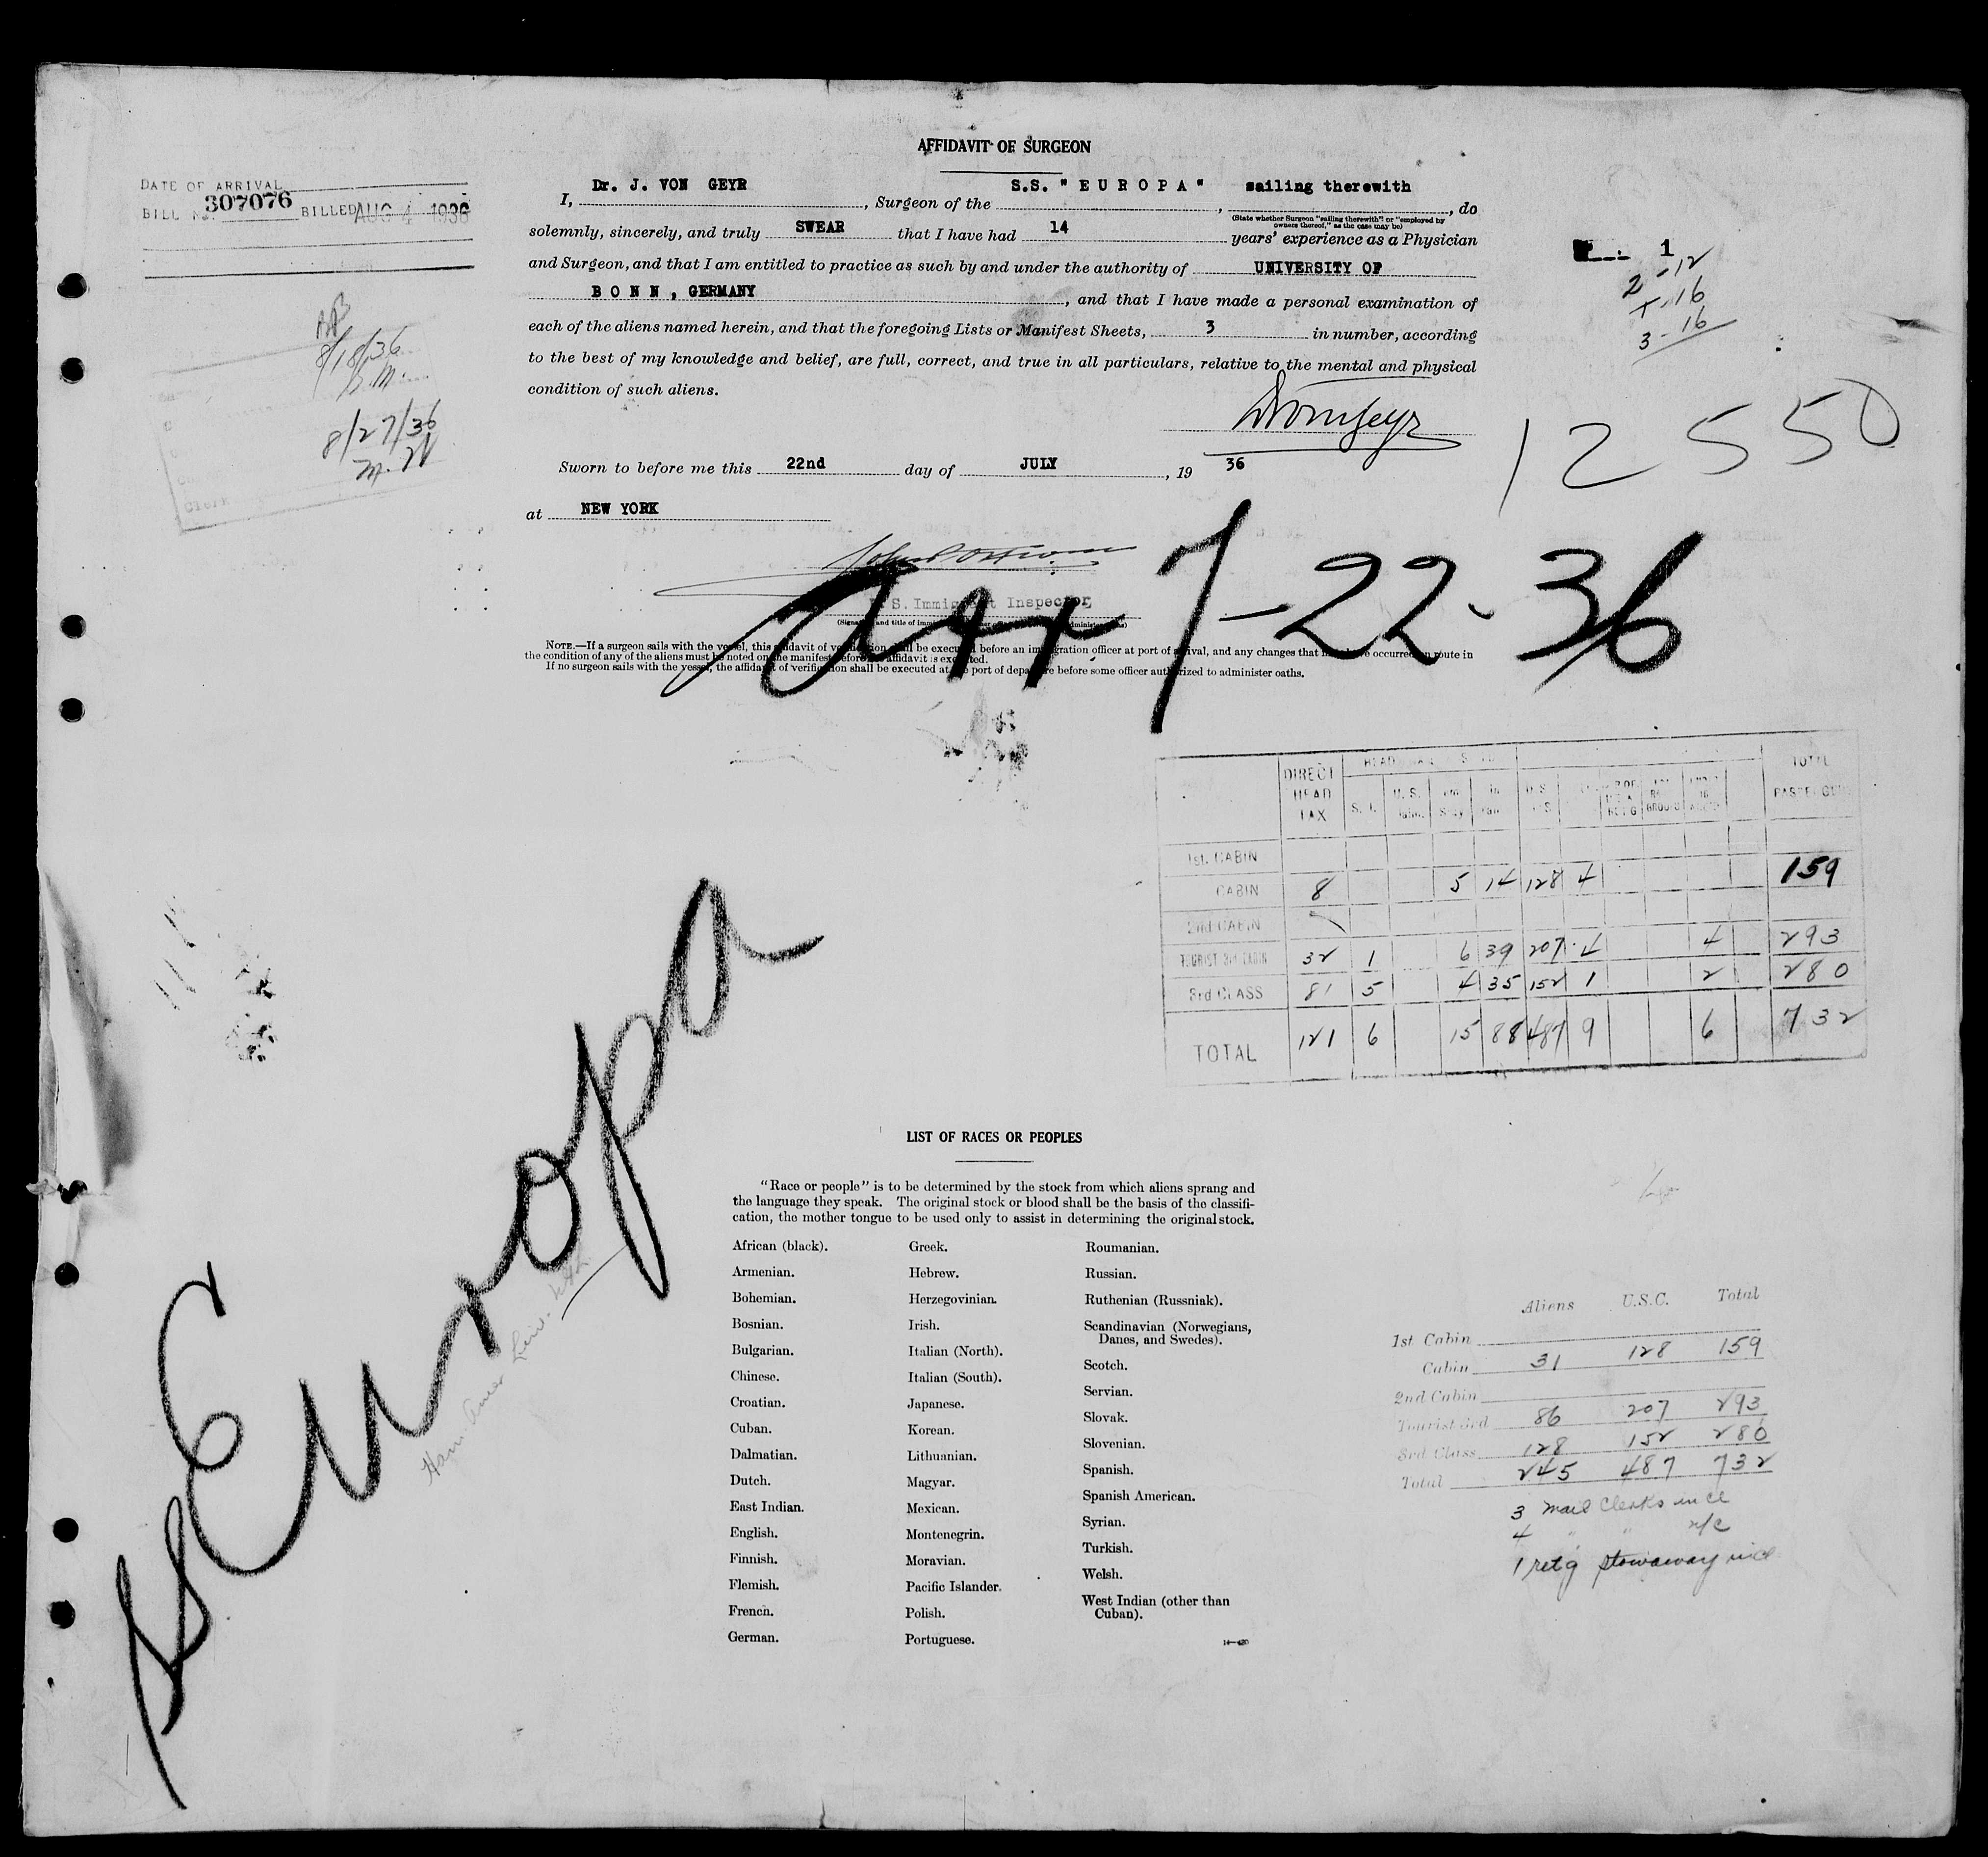 AFFIDAVIT OF SURGEON
DATE OF ARRIVAL
BILL No. 307076 BILLED AUG 4 1936
I, Dr. J. VON GEYR, Surgeon of the S.S. "EUROPA", sailing therewith, do
(State whether Surgeon "sailing therewith" or "employed by
owners thereof," as the case may be)
solemnly, sincerely, and truly SWEAR that I have had 14 years' experience as a Physician
and Surgeon, and that I am entitled to practice as such by and under the authority of UNIVERSITY OF
BONN, GERMANY, and that I have made a personal examination of
each of the aliens named herein, and that the foregoing Lists or Manifest Sheets, 3 in number, according
to the best of my knowledge and belief, are full, correct, and true in all particulars, relative to the mental and physical
condition of such aliens.
Sworn to before me this 22nd day of JULY, 19 36
at NEW YORK
1
2-12
3-16
8/18/36
8/27/36
12550
U.S. Immigrant Inspector
Arr 7-22-36
NOTE.—If a surgeon sails with the vessel, this affidavit of verification shall be executed before an immigration officer at port of arrival, and any changes that may have occurred en route in
the condition of any of the aliens must be noted on the manifest before the affidavit is executed.
If no surgeon sails with the vessel, the affidavit of verification shall be executed at the port of departure before some officer authorized to administer oaths.
DIRECT HEAD TAX
TOTAL PASSENGERS
1st. CABIN
CABIN 8 5 14 128 4 159
2nd CABIN
TOURIST 3rd CABIN 32 1 6 39 207 4 4 293
3rd CLASS 81 5 4 35 152 1 2 280
TOTAL 121 6 15 88 487 9 6 732
SS Europa
LIST OF RACES OR PEOPLES
"Race or people" is to be determined by the stock from which aliens sprang and
the language they speak. The original stock or blood shall be the basis of the classifi-
cation, the mother tongue to be used only to assist in determining the original stock.
African (black).
Armenian.
Bohemian.
Bosnian.
Bulgarian.
Chinese.
Croatian.
Cuban.
Dalmatian.
Dutch.
East Indian.
English.
Finnish.
Flemish.
French.
German.
Greek.
Hebrew.
Herzegovinian.
Irish.
Italian (North).
Italian (South).
Japanese.
Korean.
Lithuanian.
Magyar.
Mexican.
Montenegrin.
Moravian.
Pacific Islander.
Polish.
Portuguese.
Roumanian.
Russian.
Ruthenian (Russniak).
Scandinavian (Norwegians,
Danes, and Swedes).
Scotch.
Servian.
Slovak.
Slovenian.
Spanish.
Spanish American.
Syrian.
Turkish.
Welsh.
West Indian (other than
Cuban).
Aliens U.S.C. Total
1st Cabin
Cabin 31 128 159
2nd Cabin
Tourist 3rd 86 207 293
3rd Class 128 152 280
Total 245 487 732
3 Mail Clerks incl
4 " " n/c
1 ret'g stowaway incl